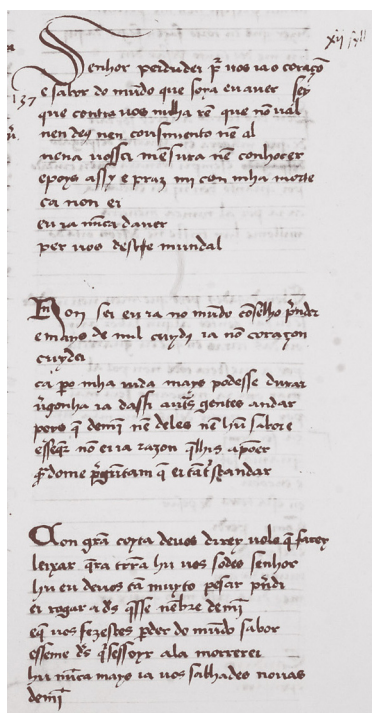 Senhor perdudei p̃ vos ia o coraçõ
137
e sabor do mũdo que soya eu aver
que contra vos nulha rẽ que nõ val
nen deg nen cousimento nẽ al
nena vossa mẽsura nẽ conhocer
e poys assy e praz mi con mha morte
ca non ei
eu ia nũca daver
per vos deste mundo al
Non sei eu ia no mũdo cõselho p̃nder
e mays de mil cuydꝭ ia nõ coraçon
cuydei
ca p̃o mha vida mays podesse durar
ũgonha ia dassi ant̃s gentes andar
pero q̃ demĩ nẽ deles nẽ hũ sabore
esseq̃r nõ ei ia razon q̃lhis apõer
p̃gũtam q̃ ei
Con grã coyta devos direy volo q̃ farey
leixar q̃ra terra hu vos sodes senhor
hu eu devos tã muyto pesar p̃ndi
ei rogar a ds̃ q̃sse nẽbre demĩ
eq̃ vos fezestes p̃der do mũdo sabor
esseme ds̃ q̃sessoyr ala morrerei
hu nũca mays ia vos salhadeo novas
demĩ